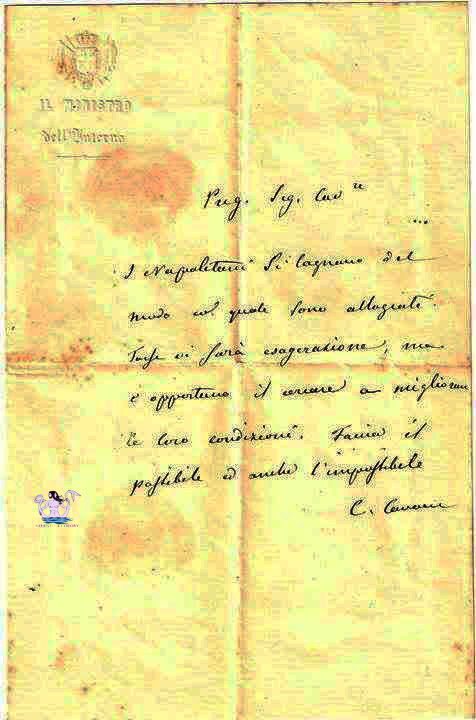 IL MINISTRO
dell'Interno
Preg. Sig. Cav re
...
I Napoletani si lagnano del
modo col quale sono allogiati.
Forse vi sarà esagerazione, ma
è opportuno il cercare a migliorare
le loro condizioni. Faccia il
possibile ed anche l'impossibile
C. Cavour